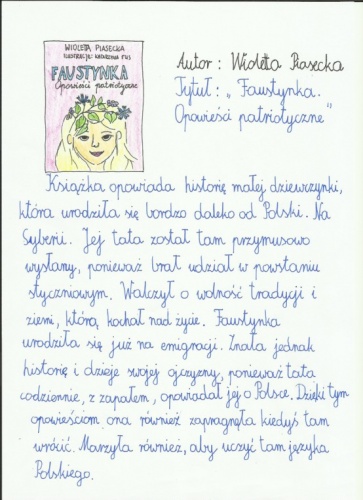 WIOLETA PIASECKA
ILUSTRACJE: KATARZYNA FUS
FAUSTYNKA
Opowieści patriotyczne
Autor: Wioleta Piasecka
Tytuł: „Faustynka.
Opowieści patriotyczne"
Książka opowiada historię małej dziewczynki,
która urodziła się bardzo daleko od Polski. Na
Syberii. Jej tata został tam przymusowo
wysłany, ponieważ brał udział w powstaniu
styczniowym. Walczył o wolność tradycji i
ziemi, którą kochał nad życie. Faustynka
urodziła się już na emigracji. Znała jednak
historię i dzieje swojej ojczyzny, ponieważ tata
codziennie, z zapałem, opowiadał jej o Polsce. Dzięki tym
opowieściom ona również zapragnęła kiedyś tam
wrócić. Marzyła również, aby uczyć tam języka
Polskiego.